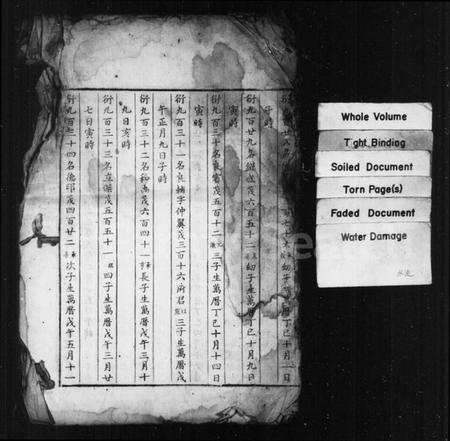 幼子生萬曆丁巳十月一日
子時
衍九百廿九名茂六百五十二幼子生萬曆丁巳十月九日
寅時
衍九百三十名良茂五百十二三子生萬曆丁巳十月十四日
寅時
衍九百三十一名良輔字仲翼茂三百十六府君三子生萬曆戊
午正月九日子時
衍九百三十二名裕高茂六百四十一長子生萬曆戊午三月十
九日亥時
衍九百三十三名傑茂五百五十一四子生萬曆戊午三月廿
七日寅時
衍九百三十四名德印茂四百廿二次子生萬曆戊午五月十一
Whole Volume
Tight Binding
Soiled Document
Torn Page(s)
Faded Document
Water Damage